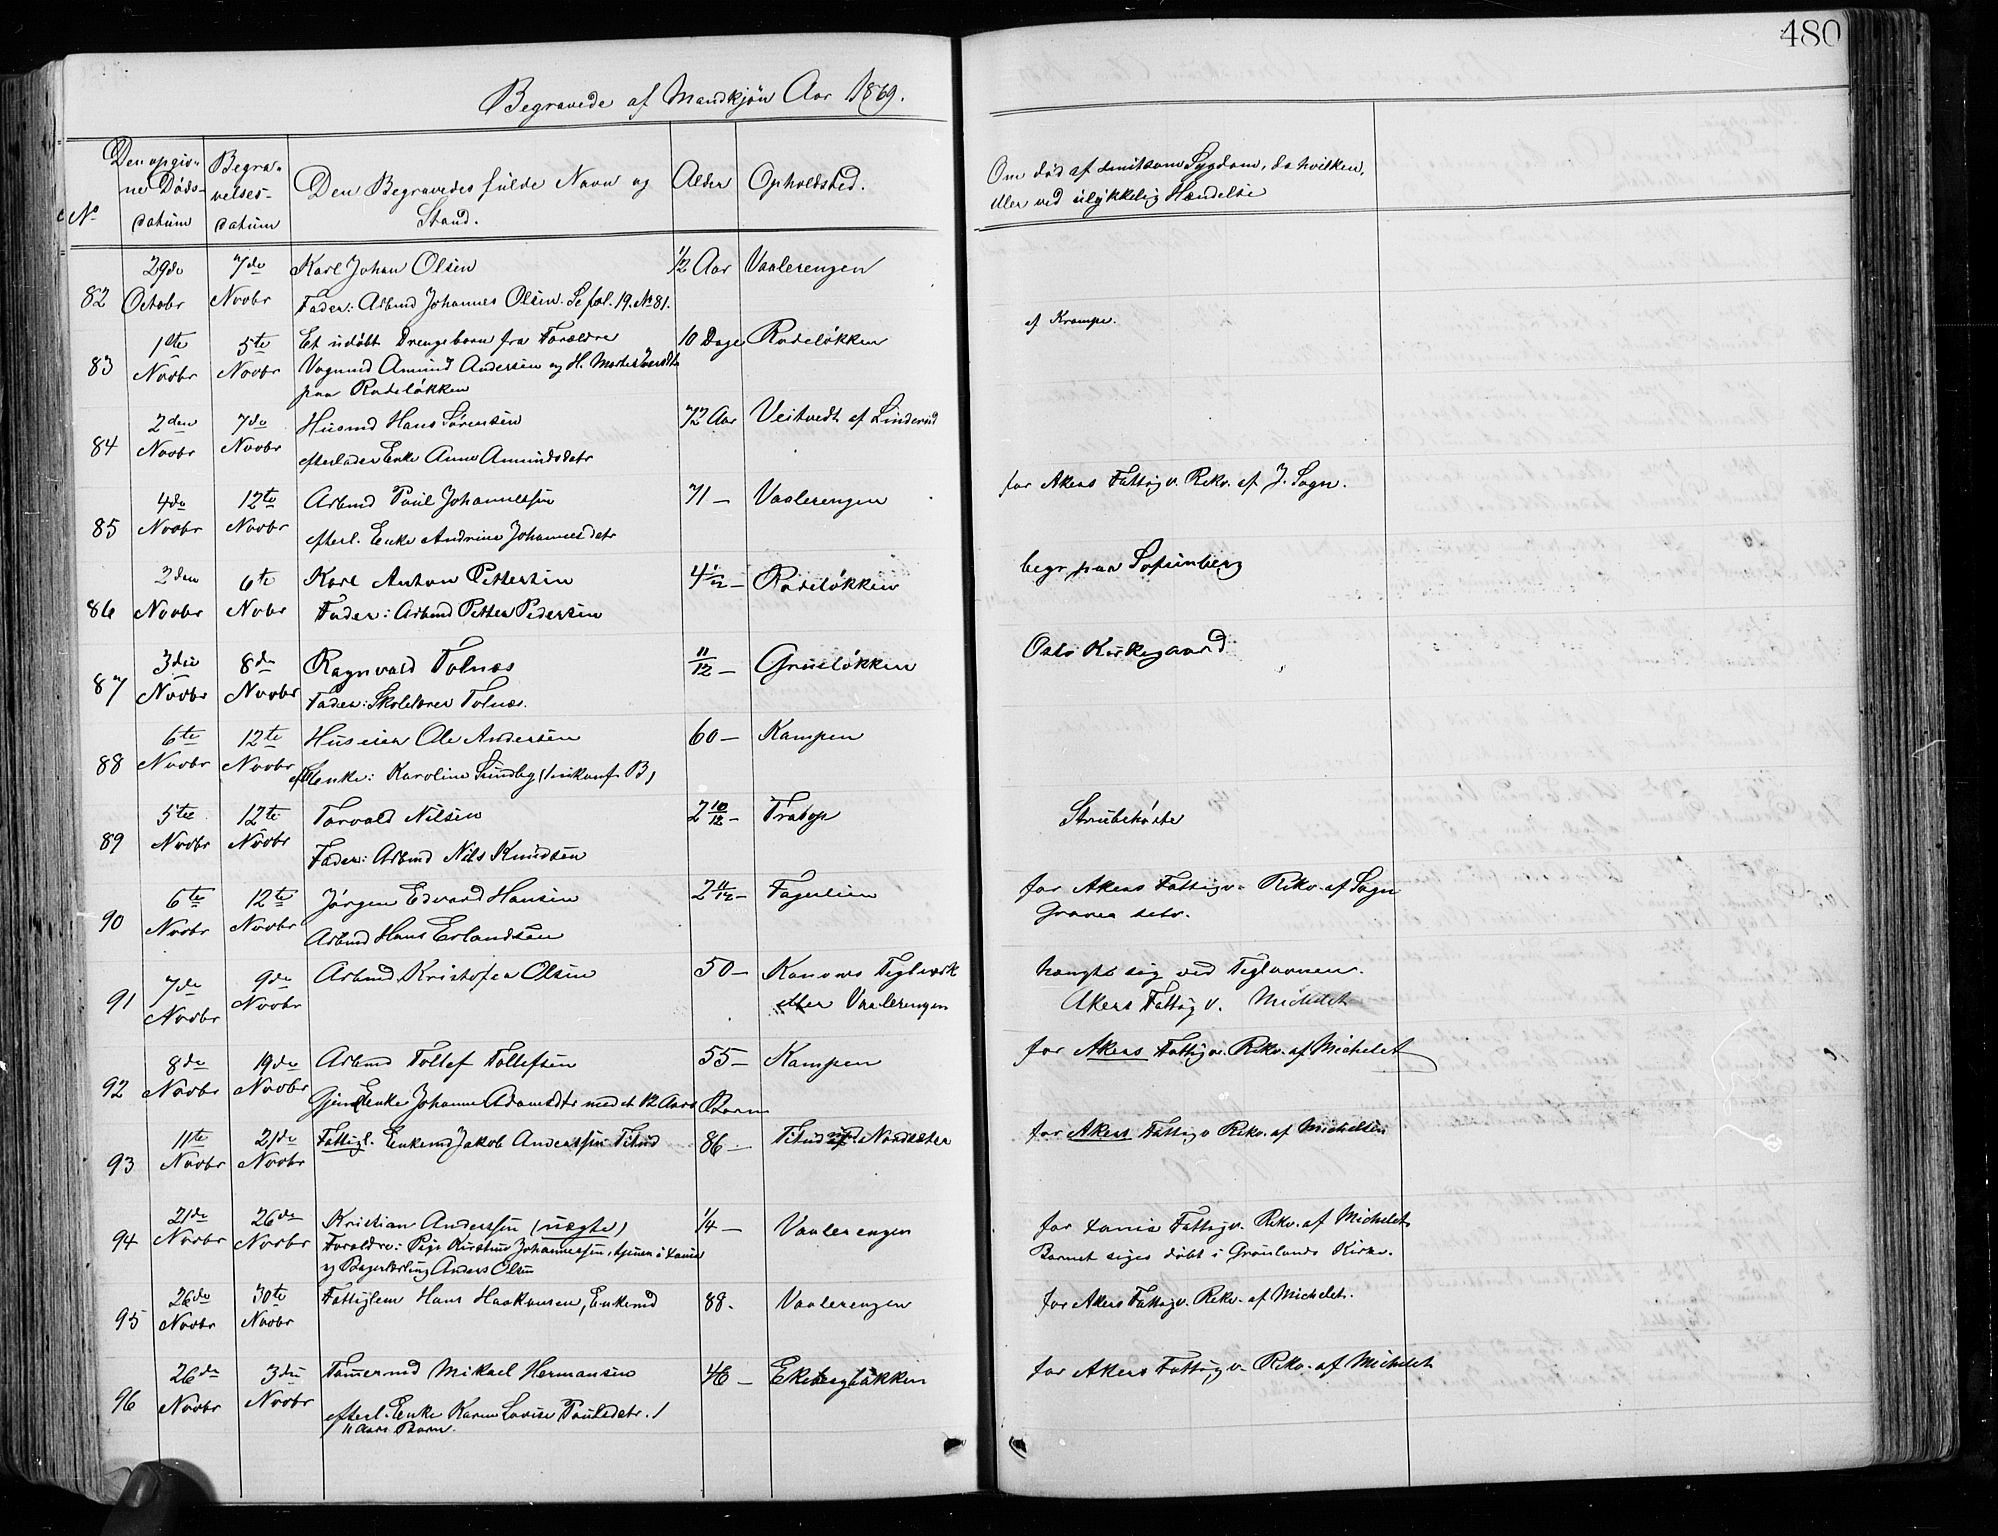 480
Begravede af Mandkjøn Aar 1869.
No
Den opgiv-
ne Døds-
datum
Begra-
velses-
datum
Den Begravedes fulde Navn og
Stand.
Alder
Opholdsted.
Om død af smitsom Sygdom, da hvilken,
eller ved ulykkelig Hændelse
82 29de Octobr 7de Novbr Karl Johan Olsen 1/2 Aar Vaalerengen
Fader: Arbmd Johannes Olsen. Se fol. 19. No 81.
83 1ste Novbr 5te Novbr Et udøbt Drengebarn fra Forældre 10 Dage Rodeløkken af Krampe.
Vognmd Amund Andersen og H.
paa Rodeløkken
84 2den Novbr 7de Novbr Husmd Hans Sørensen 72 Aar Veitvedt af Linderud
efterlader Enke Anne Amundsdatr
85 4de Novbr 12te Novbr Arbmd Poul Johannessen 71 — Vaalerengen for Akers Fattigv. Rekv. af J. Sogn.
efterl. Enke Andrine Johannesdatr
86 2den Novbr 6te Nobr Karl Anton Pettersen 4 1/12 — Rodeløkken begr. paa Sofienberg
Fader: Arbmd Petter Pedersen
87 3die Novbr 8de Novbr Ragnvald Tolnæs 11/12 — Grüneløkken Oslo Kirkegaard
Fader: Skolelærer Tolnæs.
88 6te Novbr 12te Novbr Huseier Ole Andersen 60 — Kampen
Enke: Karoline Sundby
89 5te Novbr 12te Novbr Torvald Nilsen 2 10/12 — Tratop Strubehoste
Fader: Arbmd Nils Knudsen
90 6te Novbr 12te Novbr Jørgen Edvard Hansen 2 11/12 — Fagerlien for Akers Fattigv. Rekv. af Sogn
Arbmd Hans Erlandsen Graver selv.
91 7de Novbr 9de Novbr Arbmd Kristofer Olsen 50 — Teglværk hængt sig ved Teglovnen.
eller Vaalerengen Akers Fattigv. Michelet
92 8de Novbr 19de Novbr Arbmd Tollef Tollefsen 55 — Kampen for Akers Fattigv. Rekv. af Michelet
Enke Johanne Adamsdtr med et 12 Aars Barn
93 11te Novbr 21de Novbr Fattigl. Enkemd Jakob Anderssen Titud 86 — Titud Nordsæter for Akers Fattigv Rekv. af Michelsen
94 21de Novbr 26de Novbr Kristian Anderssen (uægte) 1/4 — Vaalerengen for Fattigv. Rekv. af Michelet.
Forældre: Pige Kirstine Johannessen, tjener i
og Bagerlærling Anders Olsen
Barnet siges døbt i Grønlands Kirke.
95 26de Novbr 30te Novbr Fattiglem Hans Haakonsen, Enkemd 88. Vaalerengen for Akers Fattigv. Rekv. af Michelet.
96 26de Novbr 3die Novbr Tømermd Mikael Hermansen 46 — Ekebergløkken for Akers Fattigv. Rekv. af Michelet
efterl. Enke Karen Lovise Poulsdatr. 1
11 Aars Barn.